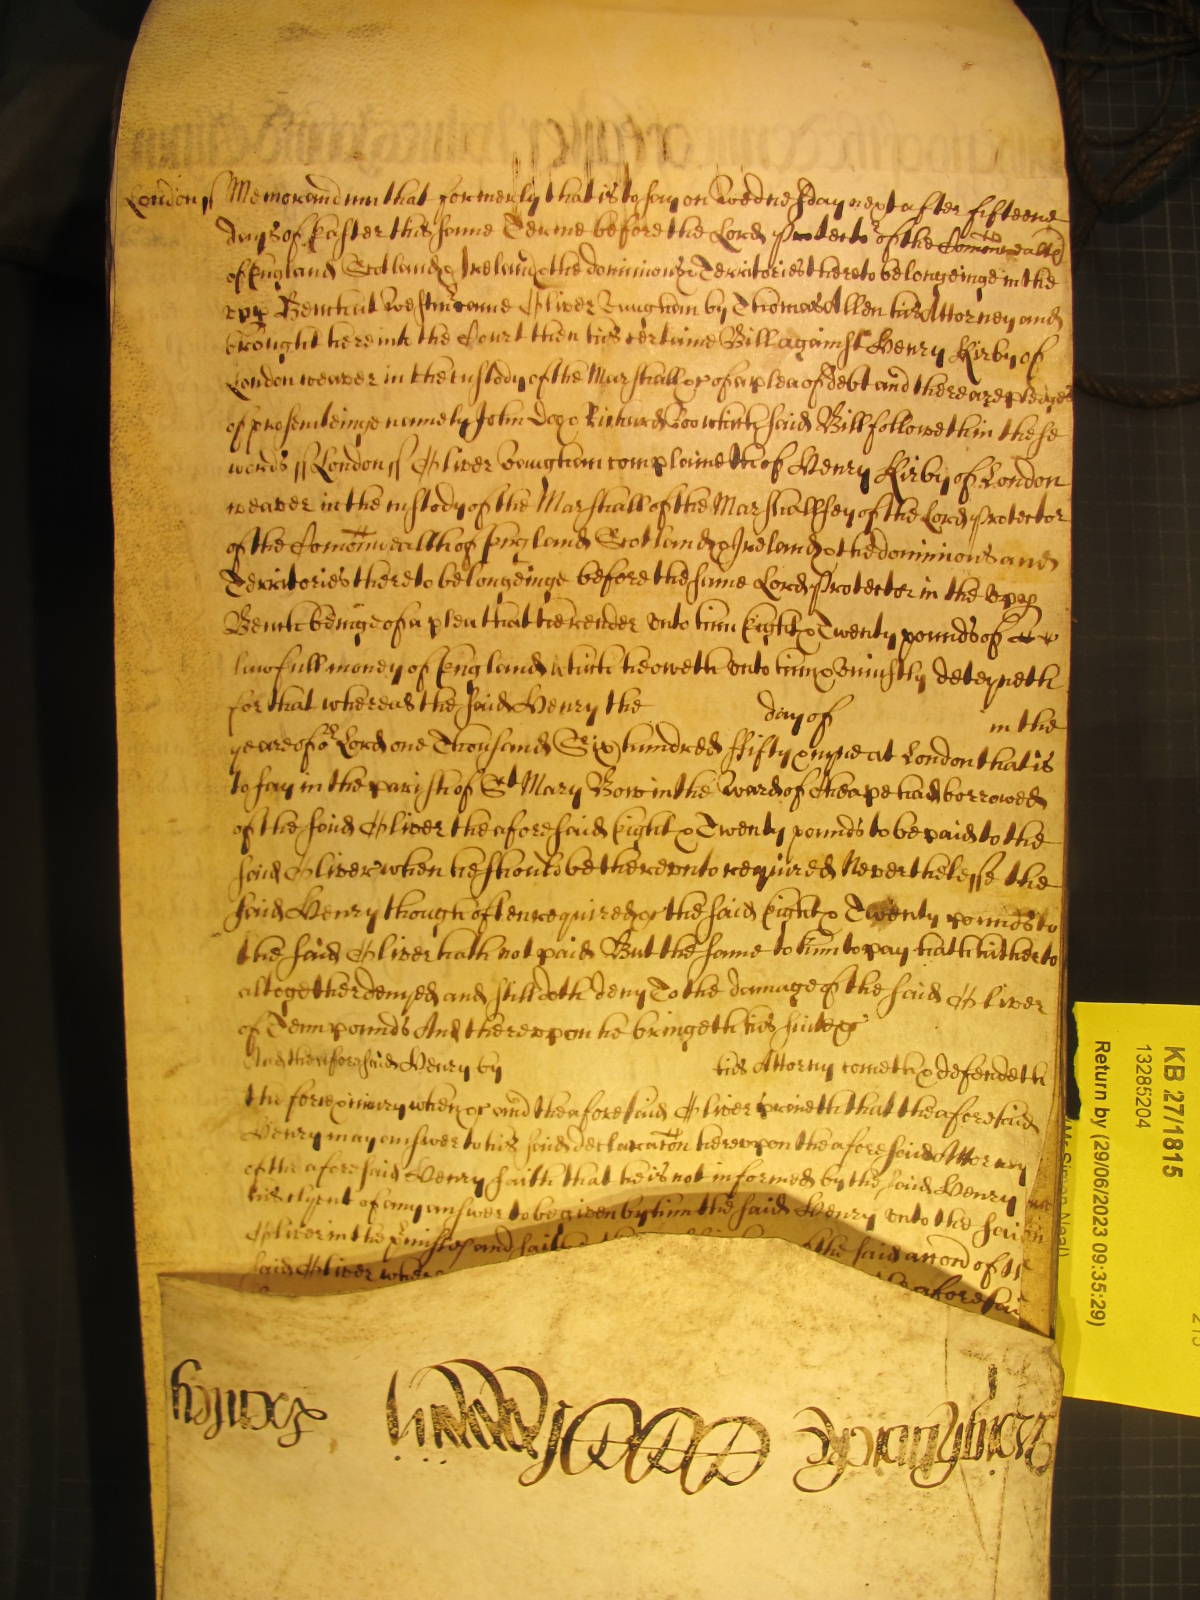 London ss Memorandum that formerly that is to say on Wednesday next after fifteene
days of Easter this same Terme before the Lord Protector of the Comonwealth
of England Scotland & Ireland & the dominions & Territories thereto belongeinge in the
upp Bench at Westm came Oliver Vaughan by Thomas Allen his Attorney and
brought here into the Court then his certaine Bill against Henry Kirby of
London weaver in the custody of the Marshall &c of a plea of debt and there are pledges
of prosecuteinge namely John Doe & Richard Roo which said Bill followeth in these
words ss London ss Oliver Vaughan complaineth of Henry Kirby of London
weaver in the custody of the Marshall of the Marshallsey of the Lord Protector
of the Comonwealth of England Scotland & Ireland & the dominions and
Territories thereto belongeinge before the same Lord Protector in the upp
Bench beinge of a plea that he render unto him Eight & Twenty pounds of
lawfull money of England which he oweth unto him & uniustly deteyneth
for that whereas the said Henry the day of in the
yeare of or Lord one Thousand Six hundred ffifty & nyne at London that is
to say in the parish of St Mary Bow in the Ward of Cheape had borrowed
of the said Oliver the aforesaid Eight & Twenty pounds to be paid to the
said Oliver when he should be thereunto required Neverthelesse the
said Henry though often required &c the said Eight & Twenty pounds to
the said Oliver hath not paid But the same to him to pay hath hitherto
altogether denyed and still doth deny To the damage of the said Oliver
of Tenn pounds And thereupon he bringeth his suite &c
And the aforesaid Henry by his Attorny cometh & defendeth
the force & iniury when &c and the aforesaid Oliver prayeth that the aforesaid
Henry may answer to his said declaracon hereupon the aforesaid Attorny
of the aforesaid Henry saith that he is not informed by the said Henry
his clyent of any answer to be given by him the said Henry unto the said
Oliver in the premisses and saith the said accord of
said Oliver where aforesaid
KB 27/1815
13285204
Return by (29/06/2023 09:35:29)
(Mr Simon Neal)